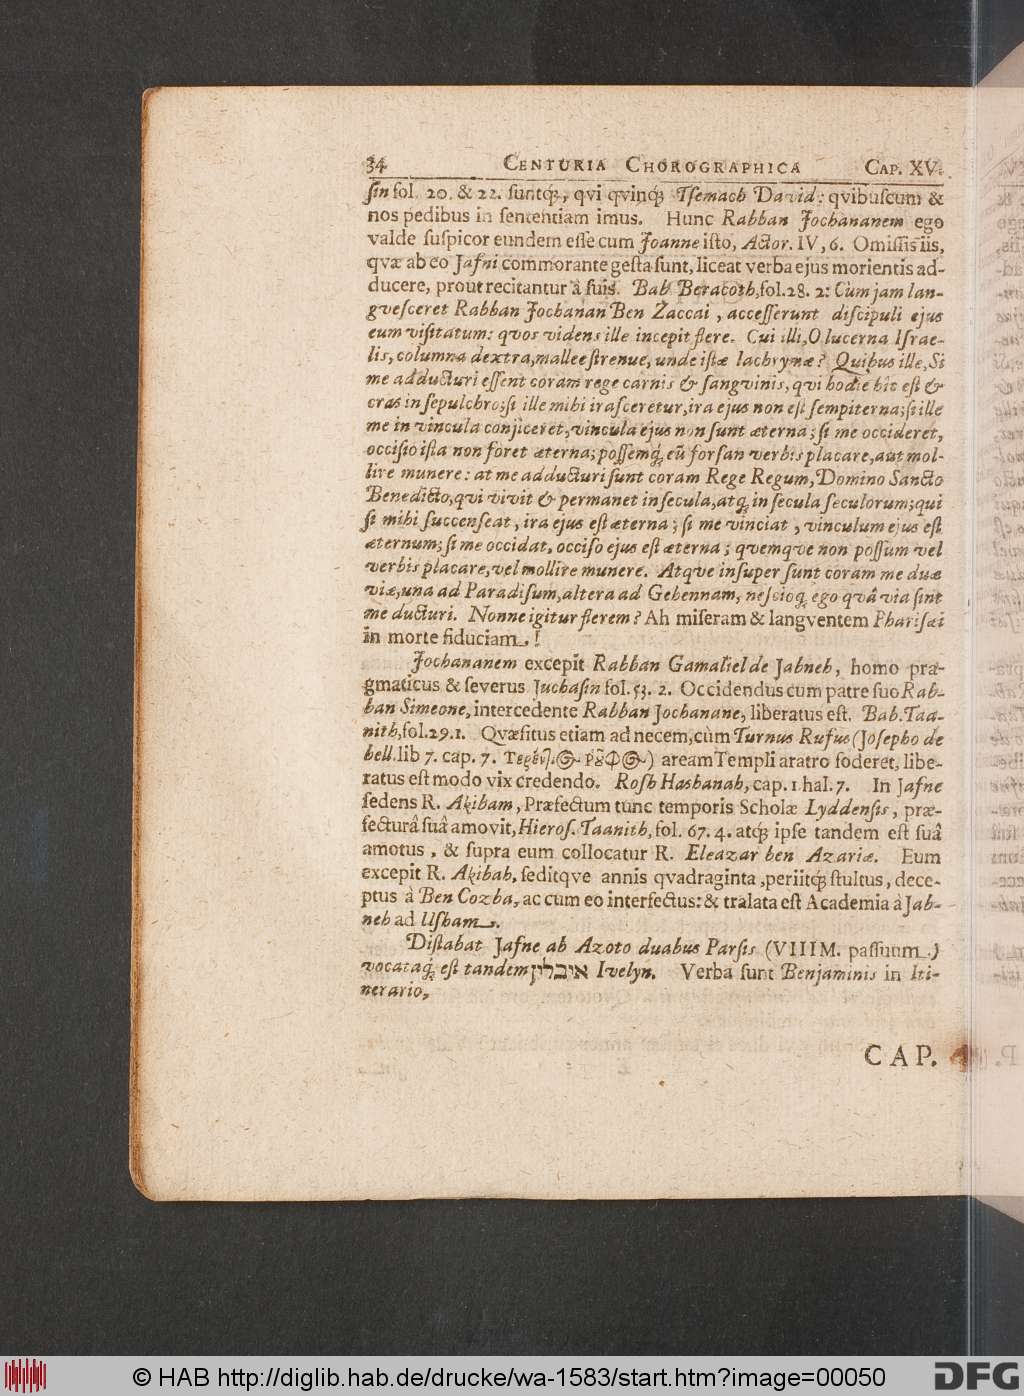 34 CENTURIA CHOROGRAPHICA CAP. XV.
ſin fol. 20. & 22. ſuntq́;, qvi qvinq́; Tſemach David: qvibuſcum &
nos pedibus in ſententiam imus. Hunc Rabban Jochananem ego
valde ſuſpicor eundem eſſe cum Joanne iſto, Actor. IV, 6. Omiſſis iis,
qvæ ab eo Jafni commorante geſta ſunt, liceat verba ejus morientis ad-
ducere, prout recitantur â ſuis. Bab. Beracoth, fol. 28. 2: Cùm jam lan-
gveſceret Rabban Jochanan Ben Zaccai, acceſſerunt diſcipuli ejus
eum viſitatum: qvos videns ille incepit flere. Cui illi, O lucerna Iſrae-
lis, columna dextra, mallee ſtrenue, unde iſtæ lachrymæ? Quibus ille, Si
me adducturi eſſent coram rege carnis & ſangvinis, qvi hodie hîc eſt &
cras in ſepulchro; ſi ille mihi iraſceretur, ira ejus non eſt ſempiterna; ſi ille
me in vincula conjiceret, vincula ejus non ſunt æterna; ſi me occideret,
occiſio iſta non foret æterna; poſſemq́; eũ forſan verbis placare, aut mol-
lire munere: at me adducturi ſunt coram Rege Regum, Domino Sancto
Benedicto, qvi vivit & permanet in ſecula, atq́; in ſecula ſeculorum; qui
ſi mihi ſuccenſeat, ira ejus eſt æterna; ſi me vinciat, vinculum ejus eſt
æternum; ſi me occidat, occiſo ejus eſt æterna; quemqve non poſſum vel
verbis placare, vel mollire munere. Atqve inſuper ſunt coram me duæ
viæ, una ad Paradiſum, altera ad Gehennam, neſcioq́; ego qvâ via ſint
me ducturi. Nonne igitur flerem? Ah miſeram & langventem Phariſæi
in morte fiduciam!
Jochananem excepit Rabban Gamaliel de Jabneh, homo pra-
gmaticus & ſeverus Juchaſin fol. 53. 2. Occidendus cum patre ſuo Rab-
ban Simeone, intercedente Rabban Jochanane, liberatus eſt. Bab. Taa-
nith, fol. 29. 1. Qvæſitus etiam ad necem, cùm Turnus Rufus (Joſepho de
bell. lib 7. cap. 7. ) aream Templi aratro foderet, libe-
ratus eſt modo vix credendo. Roſh Haſhanah, cap. 1 hal. 7. In Jafne
ſedens R. Akibam, Præfectum tunc temporis Scholæ Lyddenſis, præ-
fecturâ ſuâ amovit, Hieroſ. Taanith, fol. 67. 4. atq́; ipſe tandem eſt ſuâ
amotus, & ſupra eum collocatur R. Eleazar ben Azariæ. Eum
excepit R. Akibah, ſeditqve annis qvadraginta, periitq́; ſtultus, dece-
ptus â Ben Cozba, ac cum eo interfectus: & tralata eſt Academia â Jab-
neh ad Uſham.
Diſtabat Jafne ab Azoto duabus Parſis (VIII M. paſſuum.)
vocataq́; eſt tandem איבלין Ivelyn. Verba ſunt Benjaminis in Iti-
nerario,
CAP.
© HAB http://diglib.hab.de/drucke/wa-1583/start.htm?image=00050
DFG